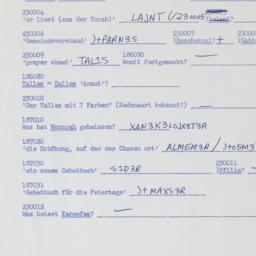 230004
'er liest (aus der Torah)' LAJNT (/230005)
230006 230007
'Gemeindevorstand' )+PARN3S
230009 186090
'prayer shawl' TAL1S Womit festgemacht? —
186080
Talles = Dalles 'Armut'?
230010
"Der Talles mit 7 Farben" (Redensart bekannt?) —
187010
Was hat Menorah geheissen? XAN3K3
187020
'die Bühung, auf der der Chasen ort' ALMEM3R /
187030 230011
'ein neues Gebetbuch' S1D3R
187031
'Gebetbuch für die Feiertage' )+MAXS3R
230012
Was heisst —